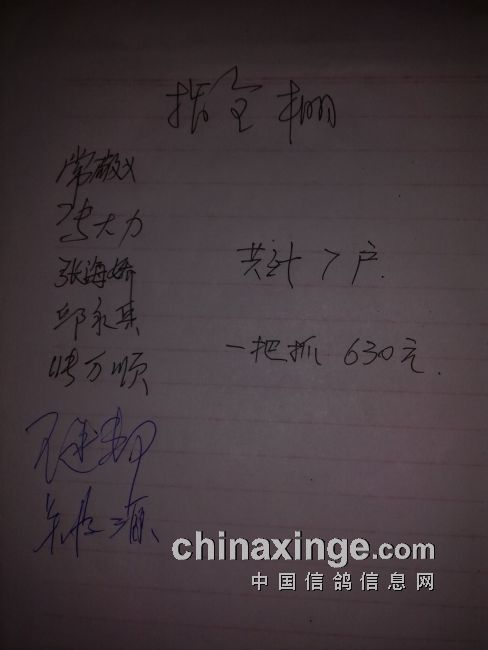 指全棚
常敬义
张大力
张海娇
共计7户.
邱永其
一把抓 630元.
万顺
chinaxinge.com
中国信鸽信息网